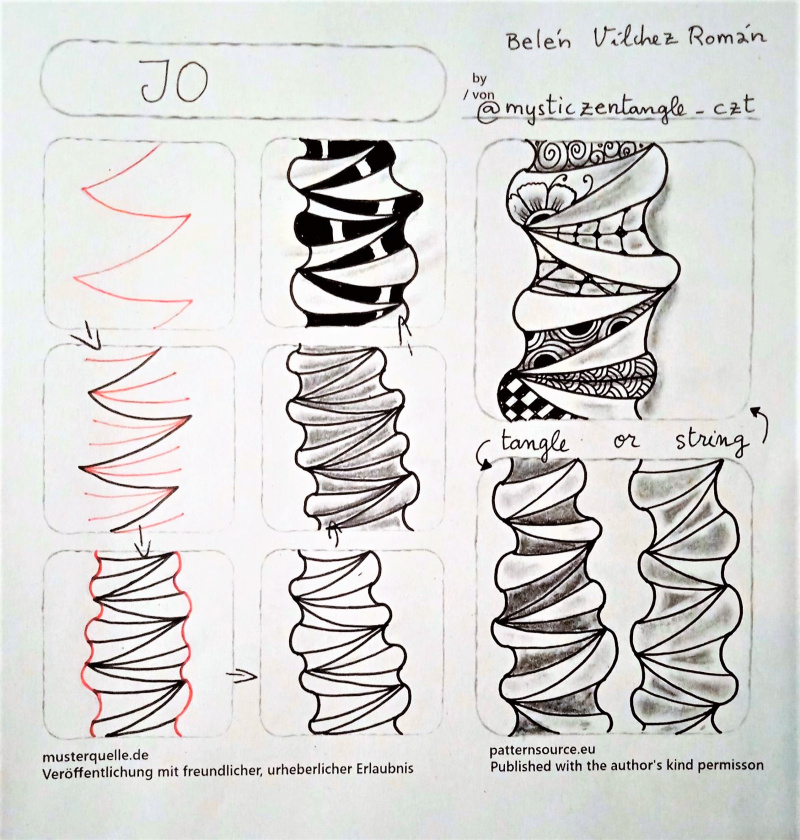 JO
Belén Vílchez Román
by
/ von
@mysticzentangle_czt
tangle or string
musterquelle.de
Veröffentlichung mit freundlicher, urheberlicher Erlaubnis
patternsource.eu
Published with the author's kind permisson